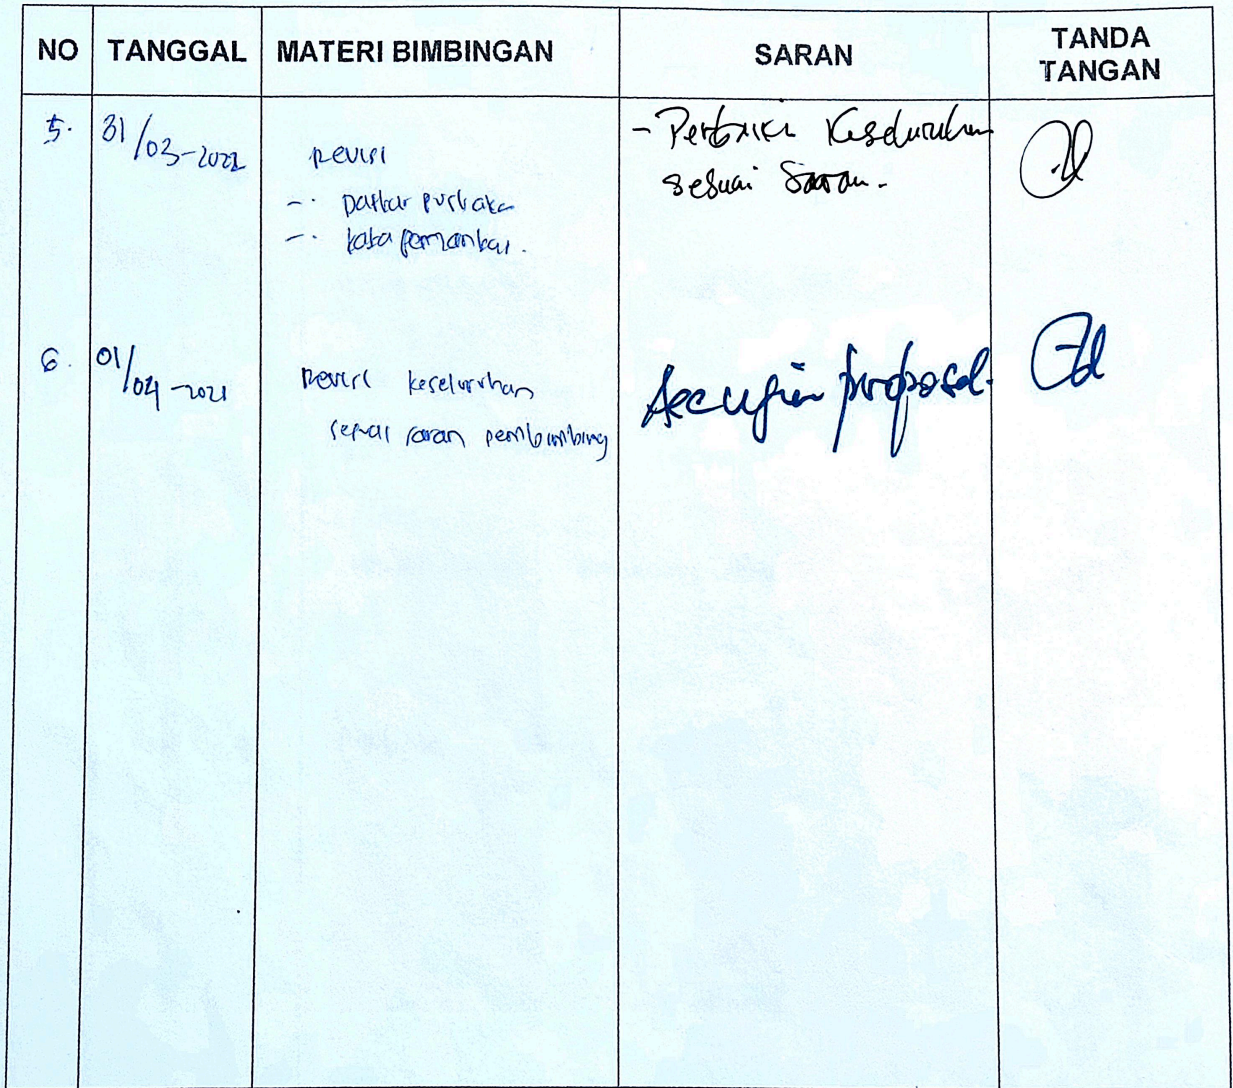 NO TANGGAL MATERI BIMBINGAN SARAN TANDA TANGAN
5. 31/03-2022 Revisi
-. Daftar Pustaka
-. kata pemantar.
- Perbaiki Keseluruhan
sesuai Saran.
6. 01/04-2021 Revisi keseluruhan
sesuai saran pembimbing
Acc ujian proposal.